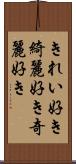 きれい好き
綺麗好き奇
麗好き